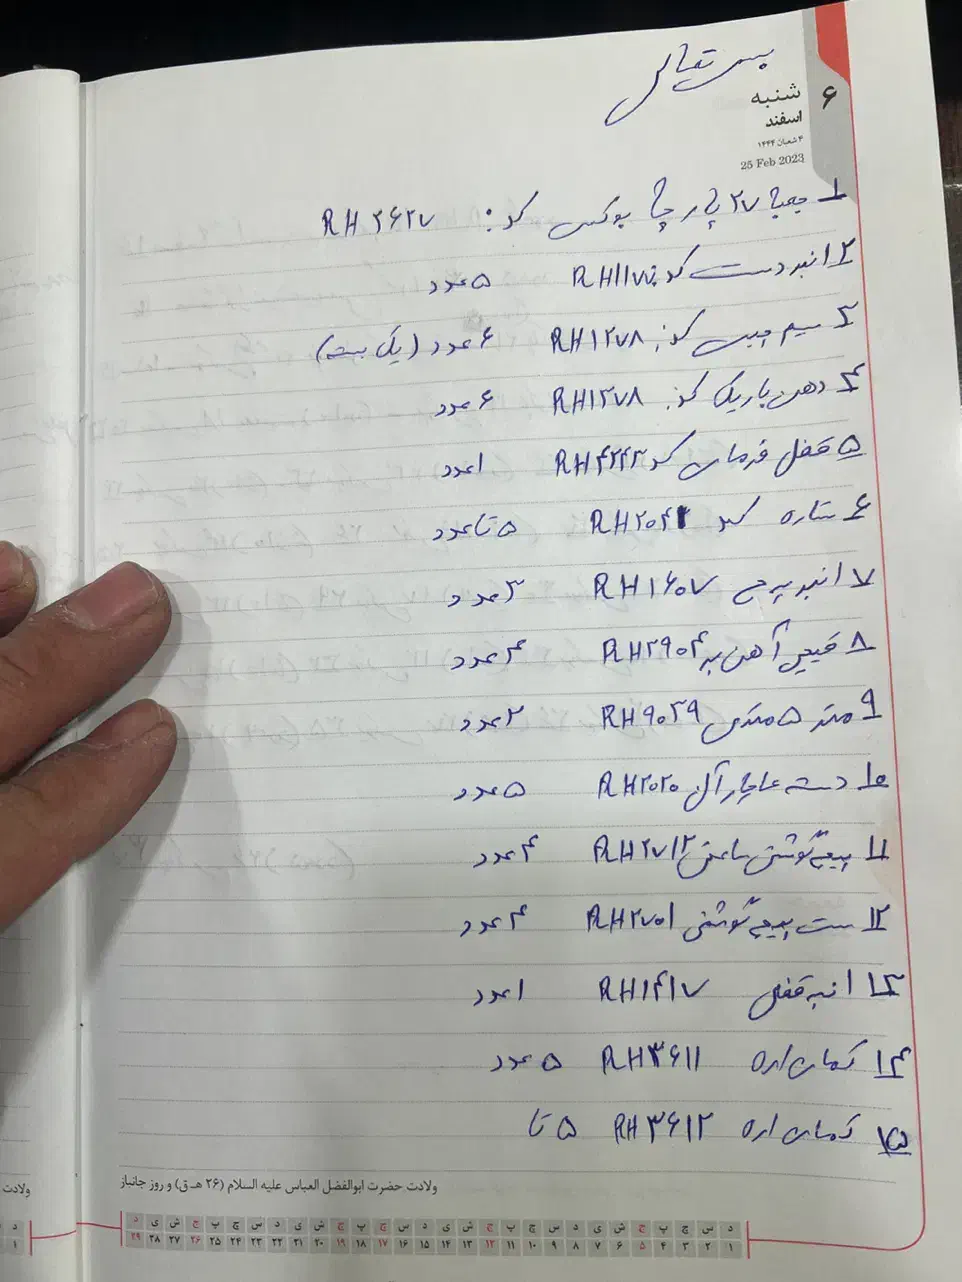 ۶
شنبه
اسفند
۴ شعبان ۱۴۴۴
25 Feb 2023
۱ جعبه ۲۷ پارچه بوکس کد: RH ۲۶۲۷
۲ انبردست کد: RH۱۱۷۷ ۵ عدد
۳ سیم چین کد: RH۱۲۷۸ ۶ عدد (یک بسته)
۴ دهن باریک کد: RH۱۳۷۸ ۶ عدد
۵ قفل فرمان کد RH۴۲۴۳ ۱ عدد
۶ ستاره کد RH۲۰۴۲ ۵ تا عدد
۷ انبر پرچ RH۱۶۰۷ ۳ عدد
۸ قیچی آهن بر RH۲۹۰۴ ۴ عدد
۹ متر ۵ متری RH۹۰۲۹ ۲ عدد
۱۰ دسته آلن RH۲۰۲۰ ۵ عدد
۱۱ پیچ گوشتی ساعتی RH۲۷۱۲ ۴ عدد
۱۲ ست پیچ گوشتی RH۲۷۰۱ ۴ عدد
۱۳ انبر قفلی RH۱۴۱۷ ۱ عدد
۱۴ کمان اره RH۳۶۱۱ ۵ عدد
۱۵ کمان اره RH۳۶۱۲ ۵ تا
ولادت حضرت ابوالفضل العباس علیه السلام (۲۶ هـ.ق) و روز جانباز
ولادت
د س چ پ ج ش ی د س چ پ ج ش ی د س چ پ ج ش ی د س چ پ ج ش ی د
۱ ۲ ۳ ۴ ۵ ۶ ۷ ۸ ۹ ۱۰ ۱۱ ۱۲ ۱۳ ۱۴ ۱۵ ۱۶ ۱۷ ۱۸ ۱۹ ۲۰ ۲۱ ۲۲ ۲۳ ۲۴ ۲۵ ۲۶ ۲۷ ۲۸ ۲۹